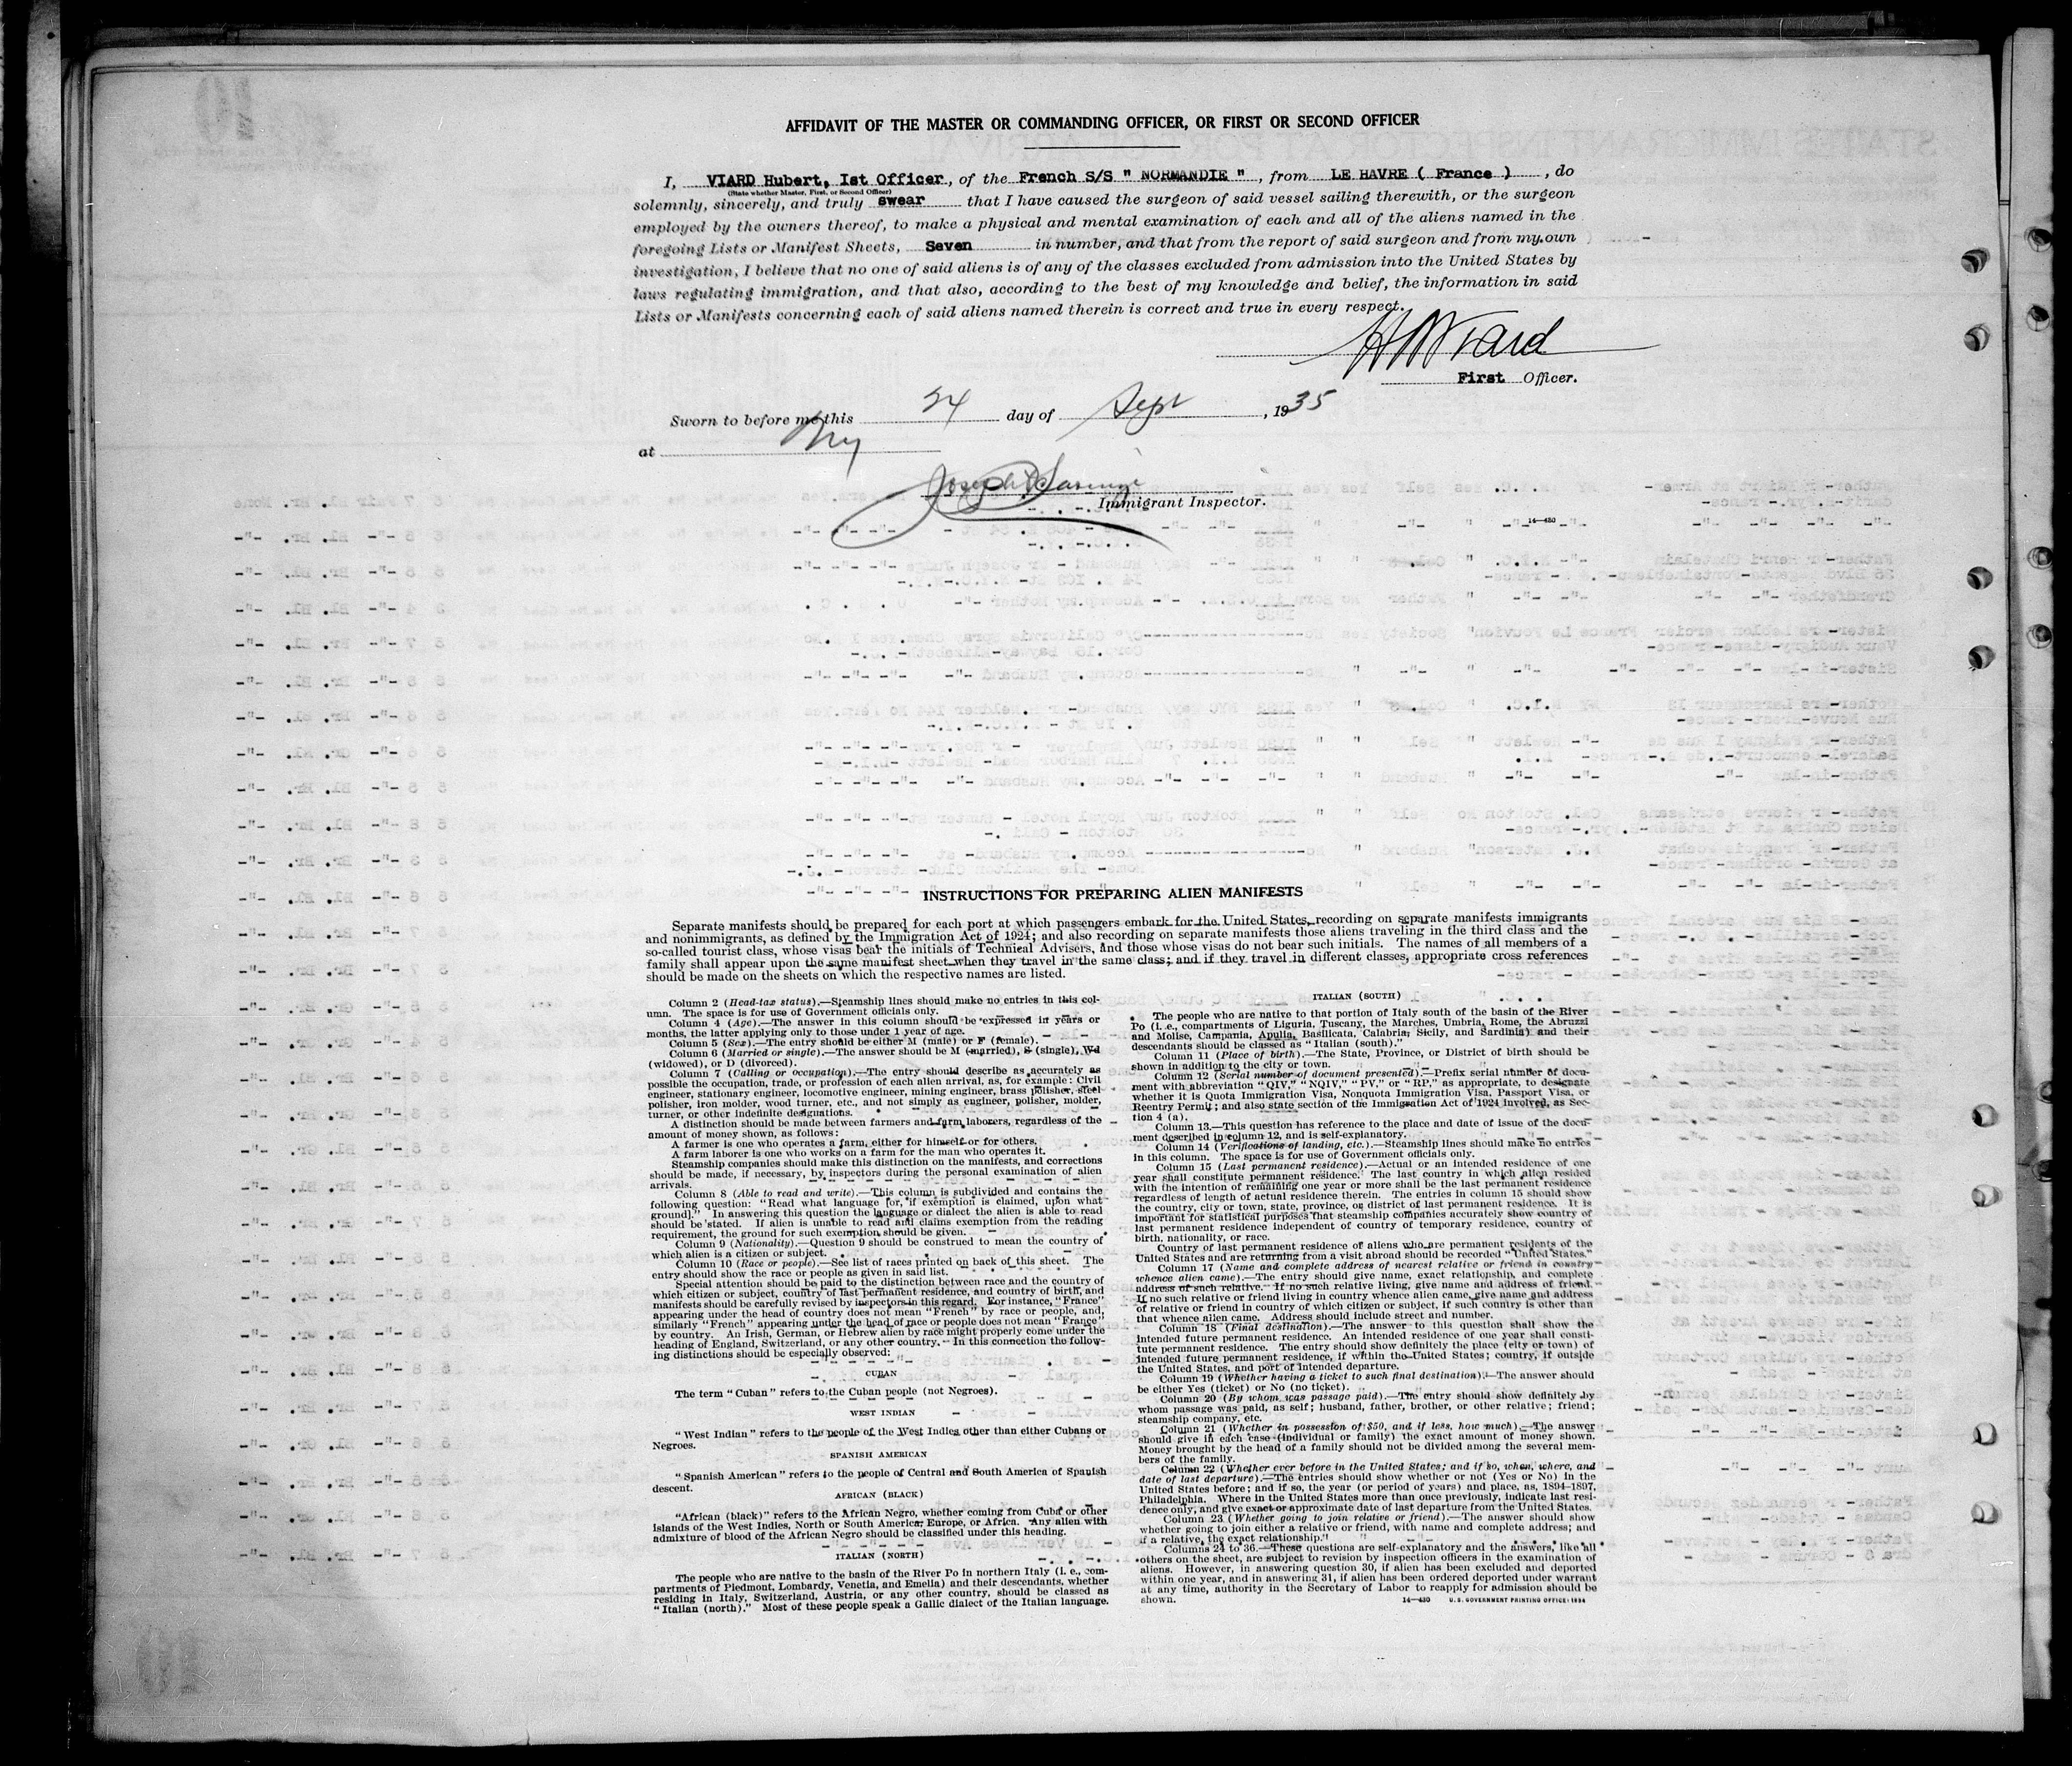 AFFIDAVIT OF THE MASTER OR COMMANDING OFFICER, OR FIRST OR SECOND OFFICER
I, VIARD Hubert, Ist Officer, of the French S/S " NORMANDIE ", from LE HAVRE ( France ), do
(State whether Master, First, or Second Officer)
solemnly, sincerely, and truly swear that I have caused the surgeon of said vessel sailing therewith, or the surgeon
employed by the owners thereof, to make a physical and mental examination of each and all of the aliens named in the
foregoing Lists or Manifest Sheets, Seven in number, and that from the report of said surgeon and from my own
investigation, I believe that no one of said aliens is of any of the classes excluded from admission into the United States by
laws regulating immigration, and that also, according to the best of my knowledge and belief, the information in said
Lists or Manifests concerning each of said aliens named therein is correct and true in every respect.
Viard
First Officer.
Sworn to before me this 24 day of Sept, 1935
at NY
Joseph
Immigrant Inspector.
14—430
INSTRUCTIONS FOR PREPARING ALIEN MANIFESTS
Separate manifests should be prepared for each port at which passengers embark for the United States, recording on separate manifests immigrants
and nonimmigrants, as defined by the Immigration Act of 1924; and also recording on separate manifests those aliens traveling in the third class and the
so-called tourist class, whose visas bear the initials of Technical Advisers, and those whose visas do not bear such initials. The names of all members of a
family shall appear upon the same manifest sheet when they travel in the same class; and if they travel in different classes, appropriate cross references
should be made on the sheets on which the respective names are listed.
Column 2 (Head-tax status).—Steamship lines should make no entries in this col-
umn. The space is for use of Government officials only.
Column 4 (Age).—The answer in this column should be expressed in years or
months, the latter applying only to those under 1 year of age.
Column 5 (Sex).—The entry should be either M (male) or F (female).
Column 6 (Married or single).—The answer should be M (married), S (single), Wd
(widowed), or D (divorced).
Column 7 (Calling or occupation).—The entry should describe as accurately as
possible the occupation, trade, or profession of each alien arrival, as, for example: Civil
engineer, stationary engineer, locomotive engineer, mining engineer, brass polisher, steel
polisher, iron molder, wood turner, etc., and not simply as engineer, polisher, molder,
turner, or other indefinite designations.
A distinction should be made between farmers and farm laborers, regardless of the
amount of money shown, as follows:
A farmer is one who operates a farm, either for himself or for others.
A farm laborer is one who works on a farm for the man who operates it.
Steamship companies should make this distinction on the manifests, and corrections
should be made, if necessary, by inspectors during the personal examination of alien
arrivals.
Column 8 (Able to read and write).—This column is subdivided and contains the
following question: "Read what language [or, if exemption is claimed, upon what
ground]." In answering this question the language or dialect the alien is able to read
should be stated. If alien is unable to read and claims exemption from the reading
requirement, the ground for such exemption should be given.
Column 9 (Nationality).—Question 9 should be construed to mean the country of
which alien is a citizen or subject.
Column 10 (Race or people).—See list of races printed on back of this sheet. The
entry should show the race or people as given in said list.
Special attention should be paid to the distinction between race and the country of
which citizen or subject, country of last permanent residence, and country of birth, and
manifests should be carefully revised by inspectors in this regard. For instance, "France"
appearing under the head of country does not mean "French" by race or people, and,
similarly "French" appearing under the head of race or people does not mean "France"
by country. An Irish, German, or Hebrew alien by race might properly come under the
heading of England, Switzerland, or any other country. In this connection the follow-
ing distinctions should be especially observed:
CUBAN
The term "Cuban" refers to the Cuban people (not Negroes).
WEST INDIAN
"West Indian" refers to the people of the West Indies other than either Cubans or
Negroes.
SPANISH AMERICAN
"Spanish American" refers to the people of Central and South America of Spanish
descent.
AFRICAN (BLACK)
"African (black)" refers to the African Negro, whether coming from Cuba or other
islands of the West Indies, North or South America, Europe, or Africa. Any alien with
admixture of blood of the African Negro should be classified under this heading.
ITALIAN (NORTH)
The people who are native to the basin of the River Po in northern Italy (i. e., com-
partments of Piedmont, Lombardy, Venetia, and Emelia) and their descendants, whether
residing in Italy, Switzerland, Austria, or any other country, should be classed as
"Italian (north)." Most of these people speak a Gallic dialect of the Italian language.
ITALIAN (SOUTH)
The people who are native to that portion of Italy south of the basin of the River
Po (i. e., compartments of Liguria, Tuscany, the Marches, Umbria, Rome, the Abruzzi
and Molise, Campania, Apulia, Basilicata, Calabria, Sicily, and Sardinia) and their
descendants should be classed as "Italian (south)."
Column 11 (Place of birth).—The State, Province, or District of birth should be
shown in addition to the city or town.
Column 12 (Serial number of document presented).—Prefix serial number of docu-
ment with abbreviation "QIV," "NQIV," "PV," or "RP," as appropriate, to designate
whether it is Quota Immigration Visa, Nonquota Immigration Visa, Passport Visa, or
Reentry Permit; and also state section of the Immigration Act of 1924 involved, as Sec-
tion 4 (a).
Column 13.—This question has reference to the place and date of issue of the docu-
ment described in column 12, and is self-explanatory.
Column 14 (Verifications of landing, etc.).—Steamship lines should make no entries
in this column. The space is for use of Government officials only.
Column 15 (Last permanent residence).—Actual or an intended residence of one
year shall constitute permanent residence. The last country in which alien resided
with the intention of remaining one year or more shall be the last permanent residence
regardless of length of actual residence therein. The entries in column 15 should show
the country, city or town, state, province, or district of last permanent residence. It is
important for statistical purposes that steamship companies accurately show country of
last permanent residence independent of country of temporary residence, country of
birth, nationality, or race.
Country of last permanent residence of aliens who are permanent residents of the
United States and are returning from a visit abroad should be recorded "United States."
Column 17 (Name and complete address of nearest relative or friend in country
whence alien came).—The entry should give name, exact relationship, and complete
address of such relative. If no such relative living, give name and address of friend.
If no such relative or friend living in country whence alien came, give name and address
of relative or friend in country of which citizen or subject, if such country is other than
that whence alien came. Address should include street and number.
Column 18 (Final destination).—The answer to this question shall show the
intended future permanent residence. An intended residence of one year shall consti-
tute permanent residence. The entry should show definitely the place (city or town) of
intended future permanent residence, if within the United States; country, if outside
the United States, and port of intended departure.
Column 19 (Whether having a ticket to such final destination).—The answer should
be either Yes (ticket) or No (no ticket).
Column 20 (By whom was passage paid).—The entry should show definitely by
whom passage was paid, as self; husband, father, brother, or other relative; friend;
steamship company, etc.
Column 21 (Whether in possession of $50, and if less, how much).—The answer
should give in each case (individual or family) the exact amount of money shown.
Money brought by the head of a family should not be divided among the several mem-
bers of the family.
Column 22 (Whether ever before in the United States; and if so, when, where, and
date of last departure).—The entries should show whether or not (Yes or No) in the
United States before; and if so, the year (or period of years) and place, as, 1894–1897,
Philadelphia. Where in the United States more than once previously, indicate last resi-
dence only, and give exact or approximate date of last departure from the United States.
Column 23 (Whether going to join relative or friend).—The answer should show
whether going to join either a relative or friend, with name and complete address; and
if a relative, the exact relationship.
Columns 24 to 36.—These questions are self-explanatory and the answers, like all
others on the sheet, are subject to revision by inspection officers in the examination of
aliens. However, in answering question 30, if alien has been excluded and deported
within one year, and in answering 31, if alien has been ordered deported under warrant
at any time, authority in the Secretary of Labor to reapply for admission should be
shown.
14—430 U. S. GOVERNMENT PRINTING OFFICE: 1934